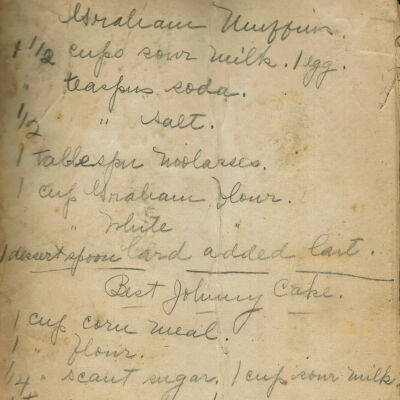 Graham Muffins.
1 1/2 cups sour milk. 1 egg.
" teaspns soda.
1/2 " salt.
1 tablespn molasses.
1 cup Graham flour.
" White "
1 dessert spoon lard added last.
Best Johnny Cake.
1 cup corn meal.
1 " flour.
1/4 " scant sugar. 1 cup sour milk